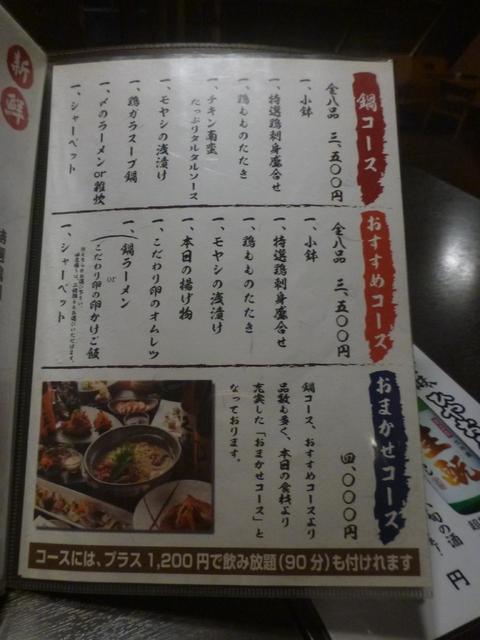 新鮮
鍋コース
全八品 三、五〇〇円
一、小鉢
一、特選鶏刺身盛合せ
一、鶏もものたたき
一、チキン南蛮
たっぷりタルタルソース
一、モヤシの浅漬け
一、鶏ガラスープ鍋
一、〆のラーメンor雑炊
一、シャーベット
おすすめコース
全八品 三、五〇〇円
一、小鉢
一、特選鶏刺身盛合せ
一、鶏もものたたき
一、モヤシの浅漬け
一、本日の揚げ物
一、こだわり卵のオムレツ
一、鍋ラーメン
or
こだわり卵の卵かけご飯
一、シャーベット
おまかせコース
四、〇〇〇円
鍋コース、おすすめコースより
品数も多く、本日の食材より
充実した「おまかせコース」と
なっております。
コースには、プラス1,200円で飲み放題(90分)も付けれます
旬の酒
円